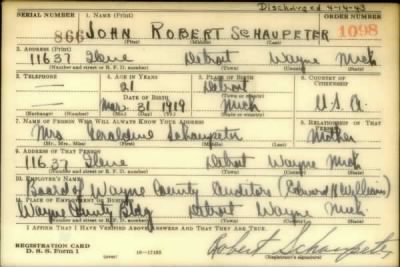 Discharged 4-14-43
SERIAL NUMBER 1. NAME (Print) ORDER NUMBER
866 JOHN ROBERT SCHAUPETER 1098
(First) (Middle) (Last)
2. ADDRESS (Print)
11637 Detroit Wayne Mich
(Number and street or R. F. D. number) (Town) (County) (State)
3. TELEPHONE 4. AGE IN YEARS 5. PLACE OF BIRTH 6. COUNTRY OF CITIZENSHIP
— 21 Detroit
DATE OF BIRTH (Town or county)
— Mar. 31 1919 Mich U.S.A.
(Exchange) (Number) (Mo.) (Day) (Yr.) (State or country)
7. NAME OF PERSON WHO WILL ALWAYS KNOW YOUR ADDRESS 8. RELATIONSHIP OF THAT PERSON
Mrs Geraldine Schaupeter Mother
(Mr., Mrs., Miss) (First) (Middle) (Last)
9. ADDRESS OF THAT PERSON
11637 Detroit Wayne Mich
(Number and street or R. F. D. number) (Town) (County) (State)
10. EMPLOYER'S NAME
Board of Wayne County Auditors (Edward H Williams)
11. PLACE OF EMPLOYMENT OR BUSINESS
Wayne County Bldg Detroit Wayne Mich
(Number and street or R. F. D. number) (Town) (County) (State)
I AFFIRM THAT I HAVE VERIFIED ABOVE ANSWERS AND THAT THEY ARE TRUE.
REGISTRATION CARD
D. S. S. Form 1 (over) 16—17105 Robert Schaupeter
(Registrant's signature)